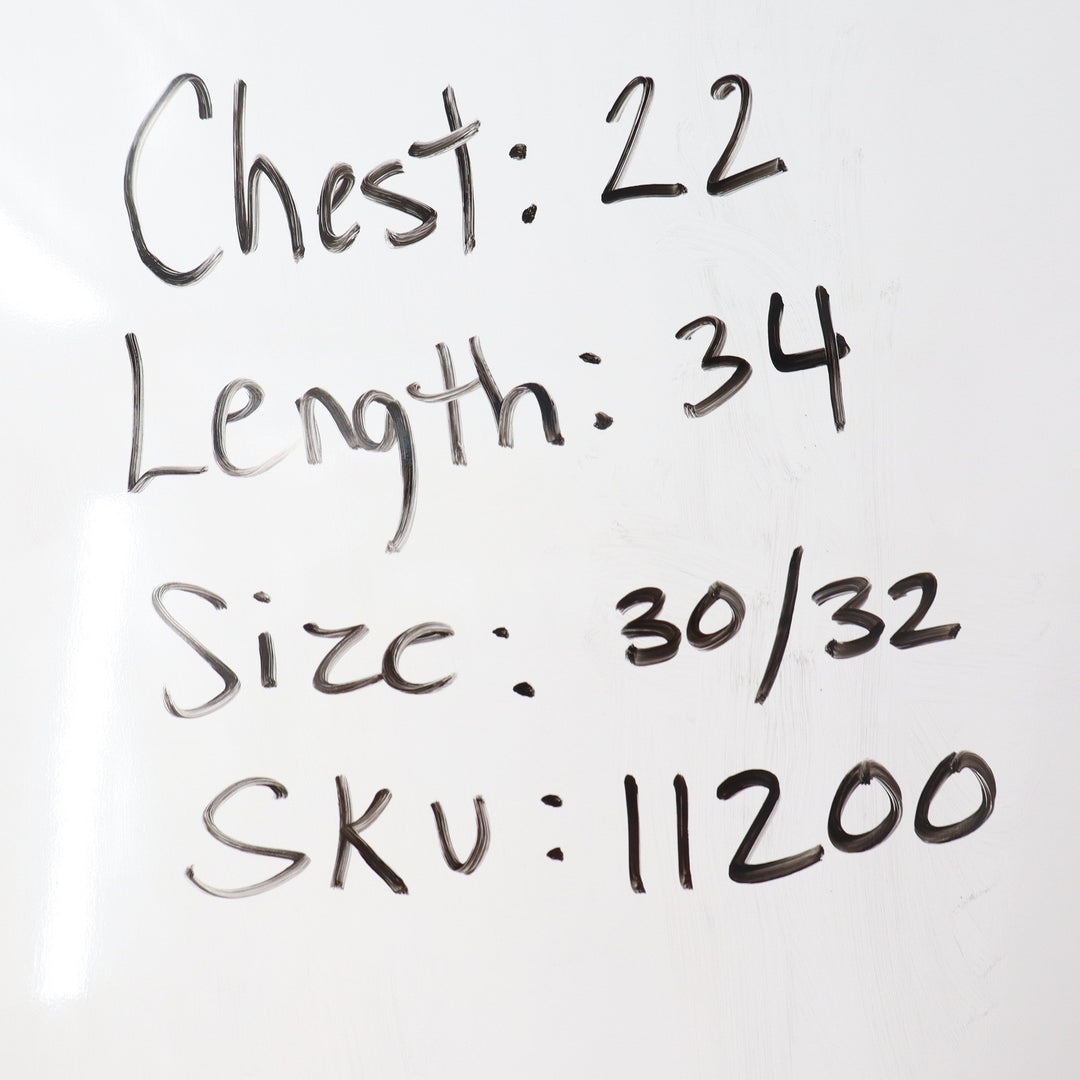 Chest: 22
Length: 34
Size: 30/32
SKU: 11200